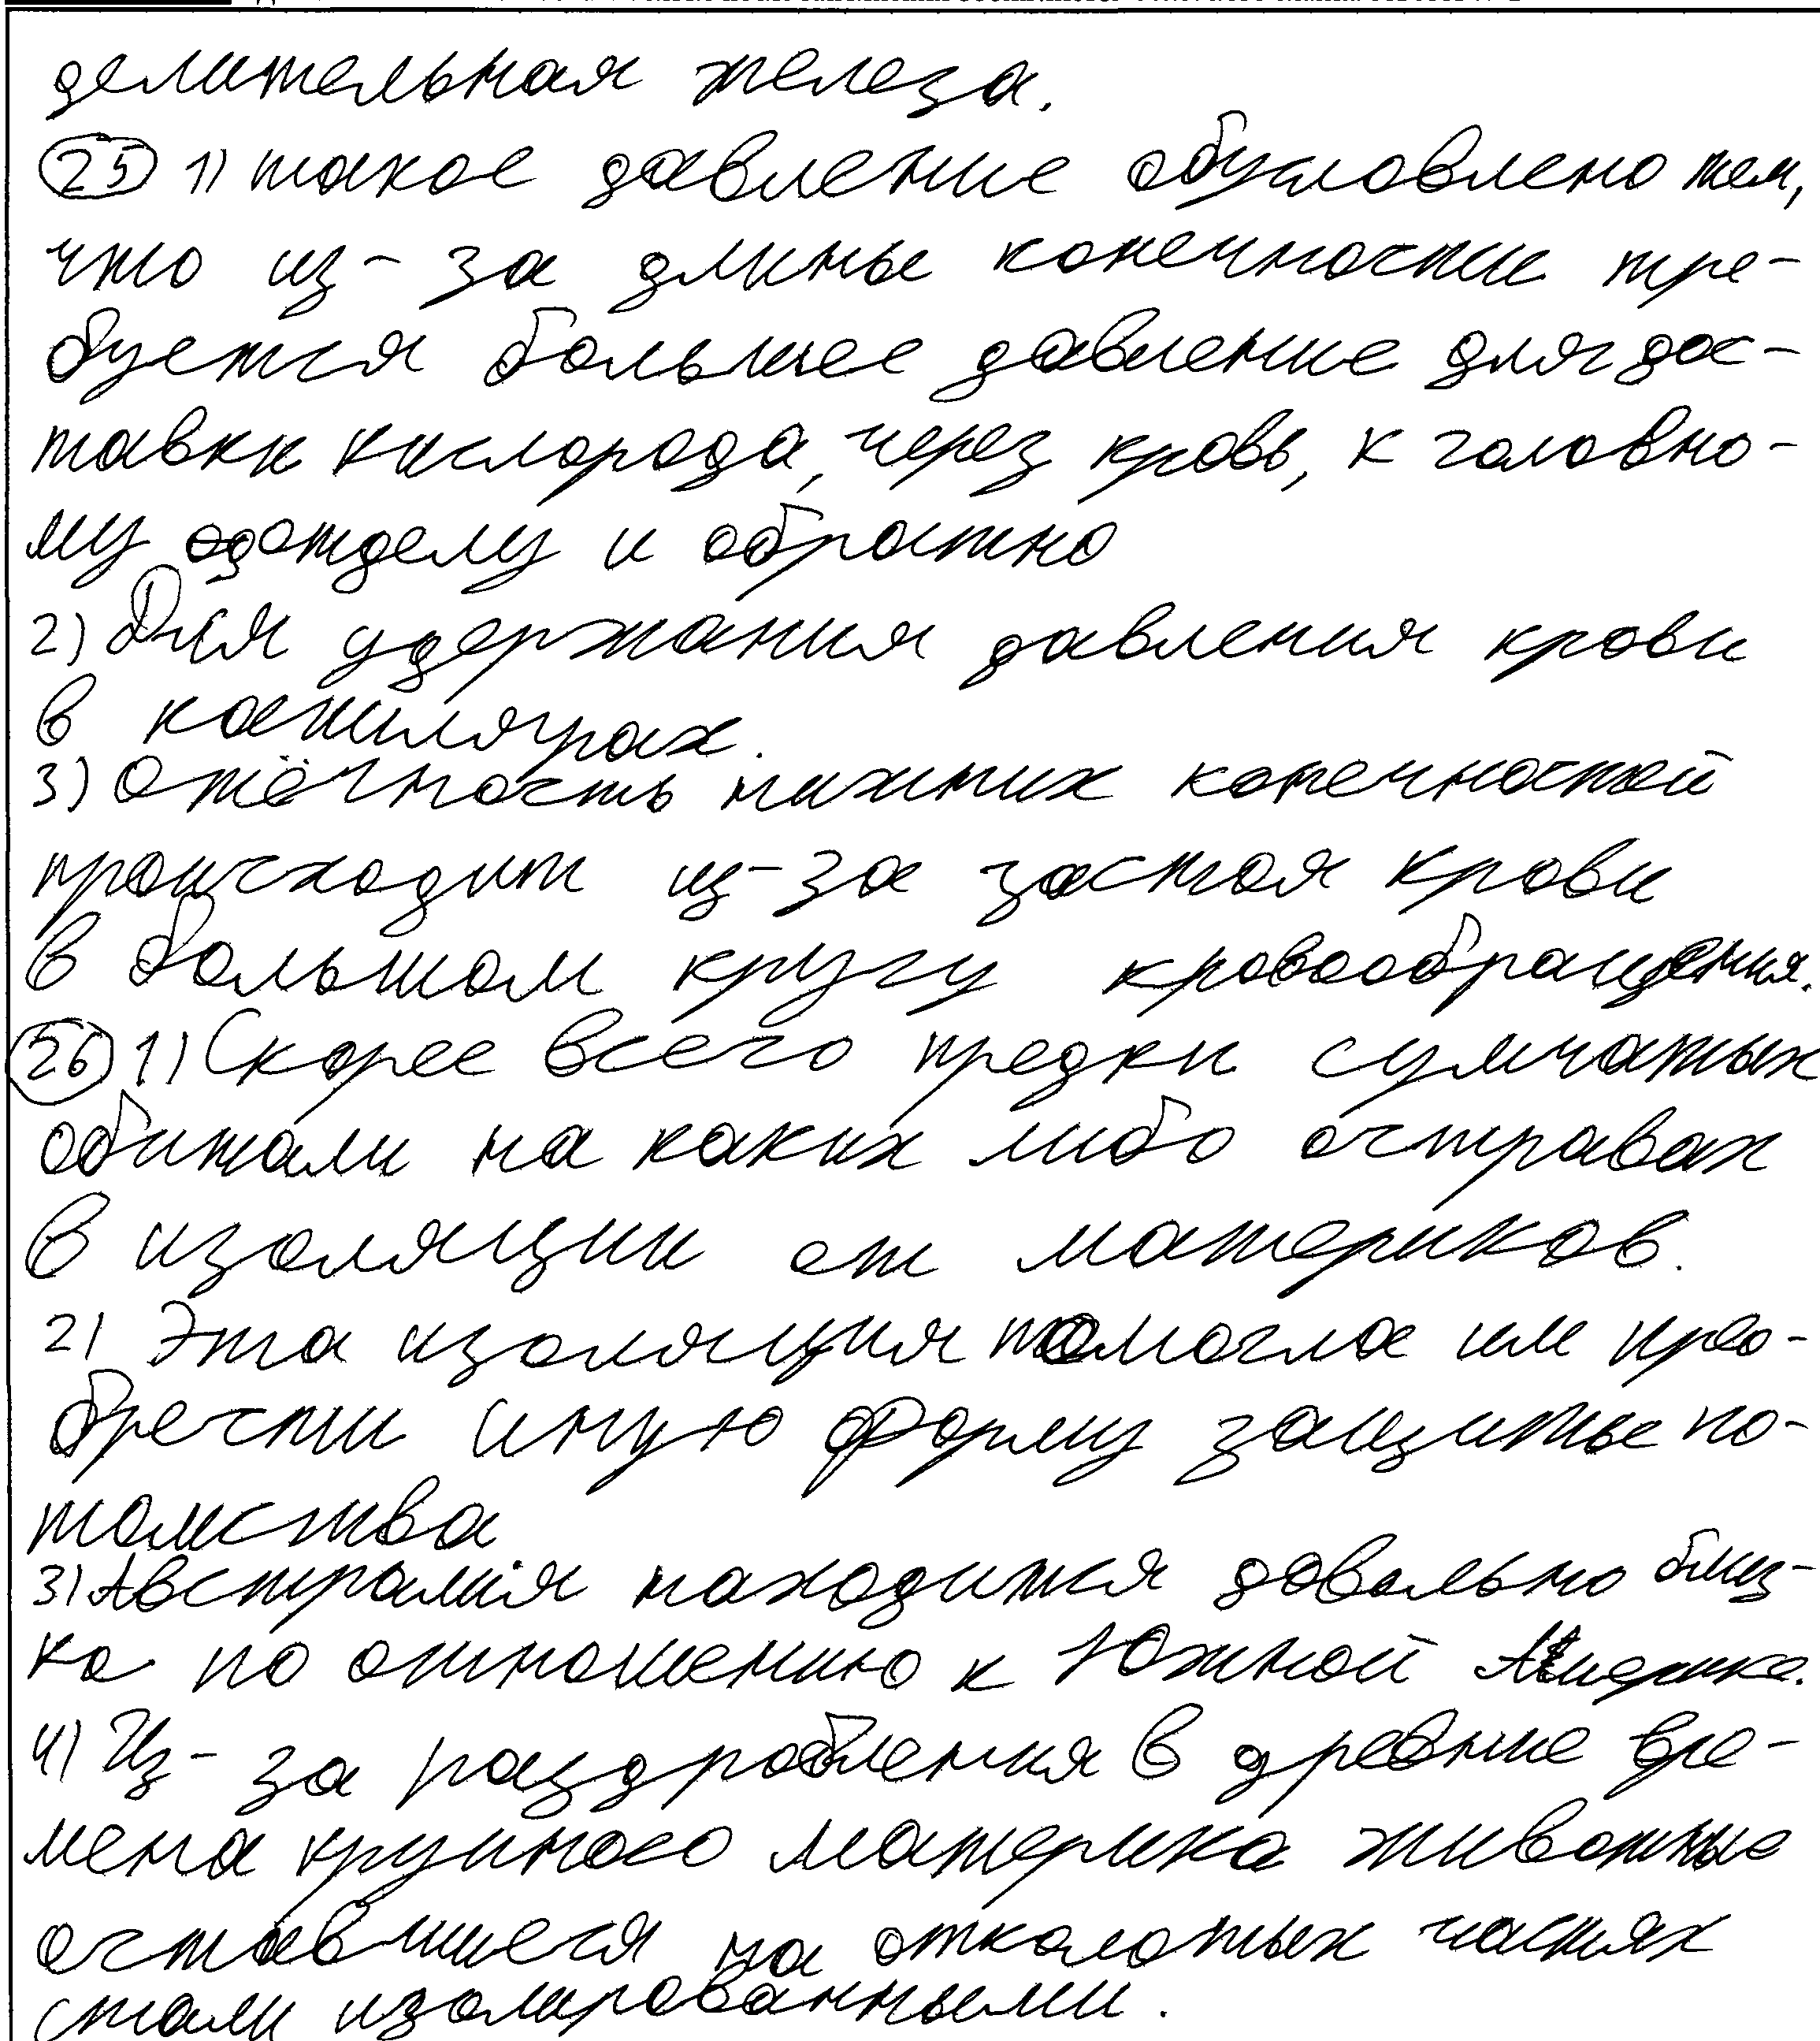 делительная железа.
25 1) такое давление обусловлено тем,
что из-за длины конечности тре-
буется большее давление для дос-
тавки кислорода, через кровь, к головно-
му отделу и обратно
2) Для удержания давления крови
в капилярах.
3) Отёчность нижних конечностей
происходит из-за застоя крови
в большом кругу кровообращения.
26 1) Скорее всего предки сумчатых
обитали на каких либо островах
в изоляции от материков.
2) Эта изоляция помогла им прео-
брести иную форму защиты по-
томства
3) Австралия находится довольно близ-
ко по отношению к Южной Америке.
4) Из-за раздробления в древние вре-
мена крупного материка животные
оставшиеся на отколотых частях
стали изолированными.